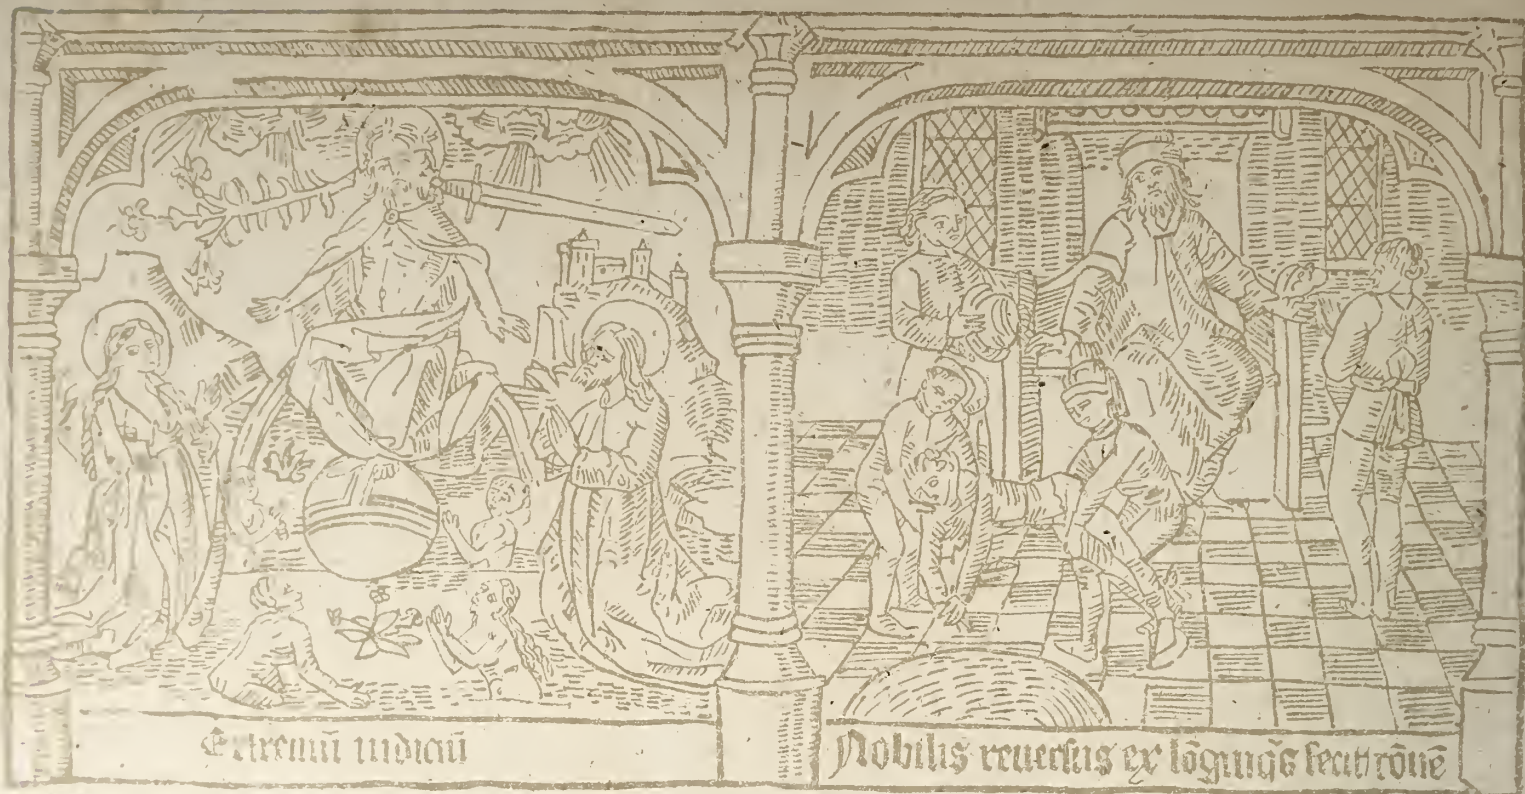 Extremū iudiciū
Nobilis reuersus ex lōginq̄s fecit cōuē